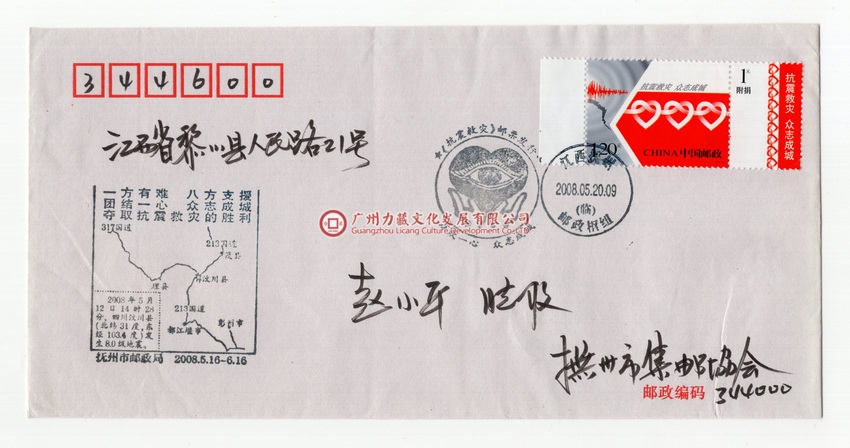 344600
江西省黎川县人民路21号
抗震救灾 众志成城
1元
附捐
抗震救灾 众志成城
1.20元
CHINA中国邮政
《抗震救灾》邮票发行
众志成城
江西
2008.05.20.09
(临)
邮政
一方有难 八方支援
团结一心 众志成城
夺取抗震救灾的胜利
317国道
213国道
茂县
理县
汶川县
213国道
都江堰市
彭州市
2008年5月
12日14时28
分,四川汶川县
(北纬31度,东
经103.4度)发
生8.0级地震。
抚州市邮政局 2008.5.16-6.16
广州力藏文化发展有限公司
Guangzhou Licang Culture Development co.Ltd
赵小平 收
抚州市集邮协会
邮政编码 344000